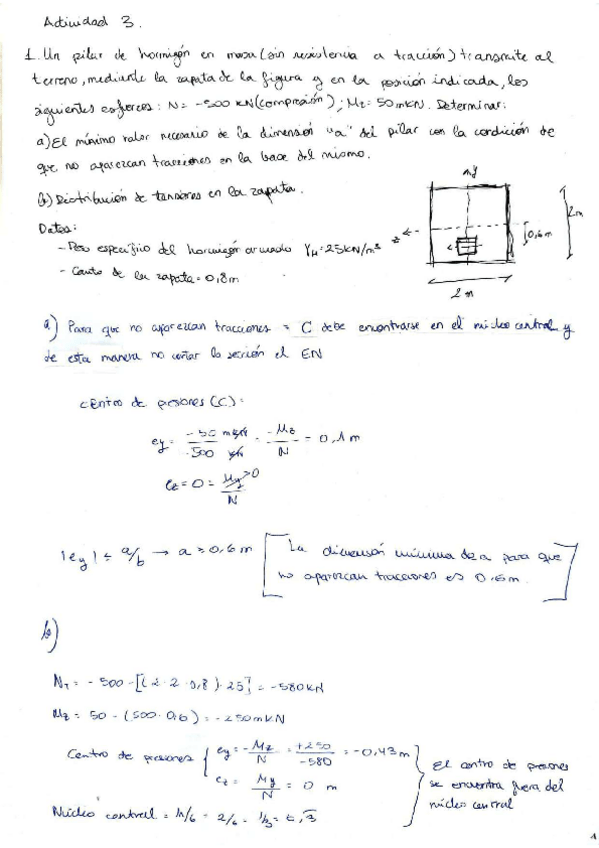 Actividad 3.
1. Un pilar de hormigón en masa (sin resistencia a tracción) transmite al
terreno, mediante la zapata de la figura y en la posición indicada, los
siguientes esfuerzos: N = -500 kN (compresión); Mz = 50 mkN. Determinar:
a) El mínimo valor necesario de la dimensión "a" del pilar con la condición de
que no aparezcan tracciones en la base del mismo.
b) Distribución de tensiones en la zapata.
Datos:
- Peso específico del hormigón armado γH = 25 kN/m³
- Canto de la zapata = 0,8 m
y
z
2m
0,6m
2 m
a) Para que no aparezcan tracciones = C debe encontrarse en el núcleo central y
de esta manera no cortar la sección el EN
centro de presiones (C):
ey = -50 mkN / -500 kN = -Mz / N = 0,1 m
ez = 0 = My / N
|ey| ≤ a/6 → a ≥ 0,6 m
La dimensión mínima de a para que
no aparezcan tracciones es 0,6 m.
b)
NT = -500 - [(2·2·0,8)·25] = -580 kN
Mz = 50 - (500·0,6) = -250 mkN
Centro de presiones
ey = -Mz / N = +250 / -580 = -0,43 m
ez = My / N = 0 m
El centro de presiones
se encuentra fuera del
núcleo central
Núcleo central = h/6 = 2/6 = 1/3 = 0,3
1